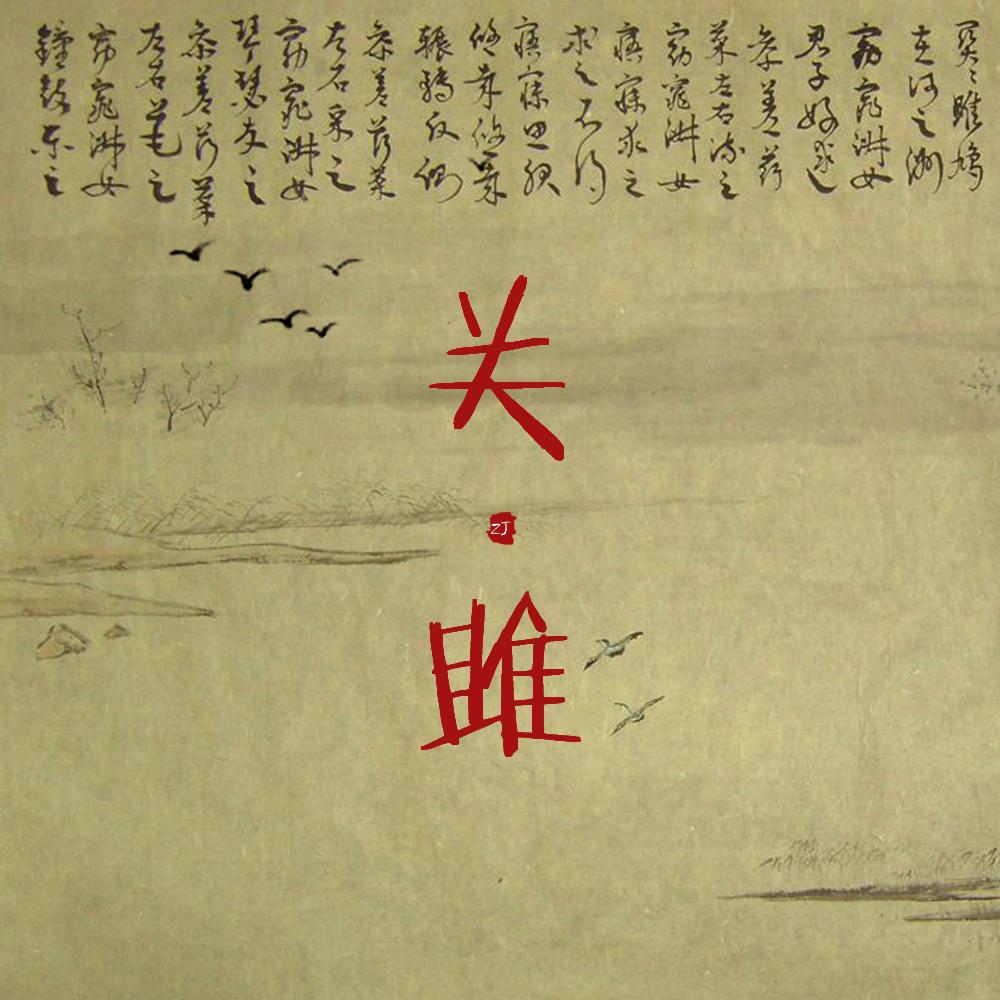 關〻雎鳩
在河之洲
窈窕淑女
君子好逑
參差荇
菜左右流之
窈窕淑女
寤寐求之
求之不得
寤寐思服
悠哉悠哉
輾轉反側
參差荇菜
左右采之
窈窕淑女
琴瑟友之
參差荇菜
左右芼之
窈窕淑女
鐘鼓樂之
关
ZJ
雎